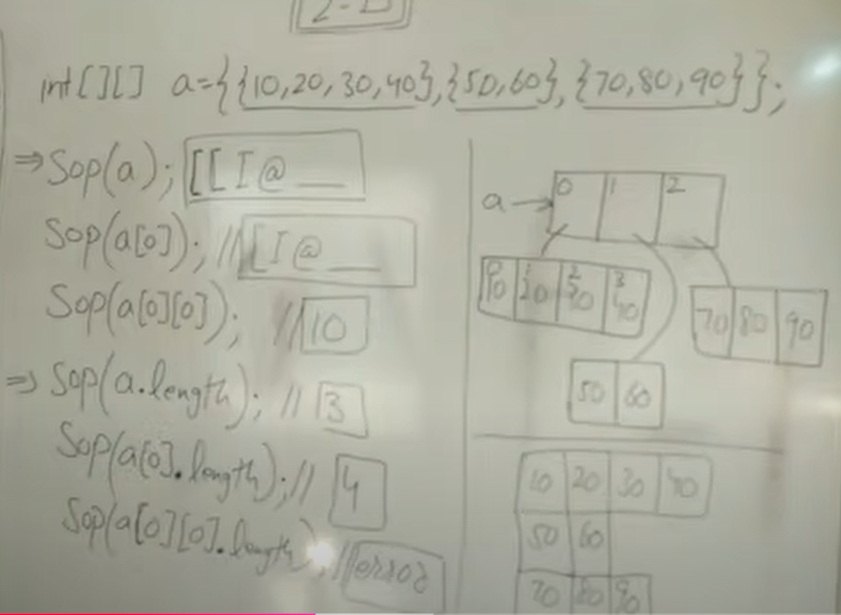 int[][] a={{10,20,30,40},{50,60},{70,80,90}};
⇒ Sop(a); [[I@__
Sop(a[0]); //[I@__
Sop(a[0][0]); //10
⇒ Sop(a.length); //3
Sop(a[0].length);//4
Sop(a[0][0].length);//error
a→ 0 1 2
0 1 2 3
10 20 30 40
70 80 90
50 60
10 20 30 40
50 60
70 80 90